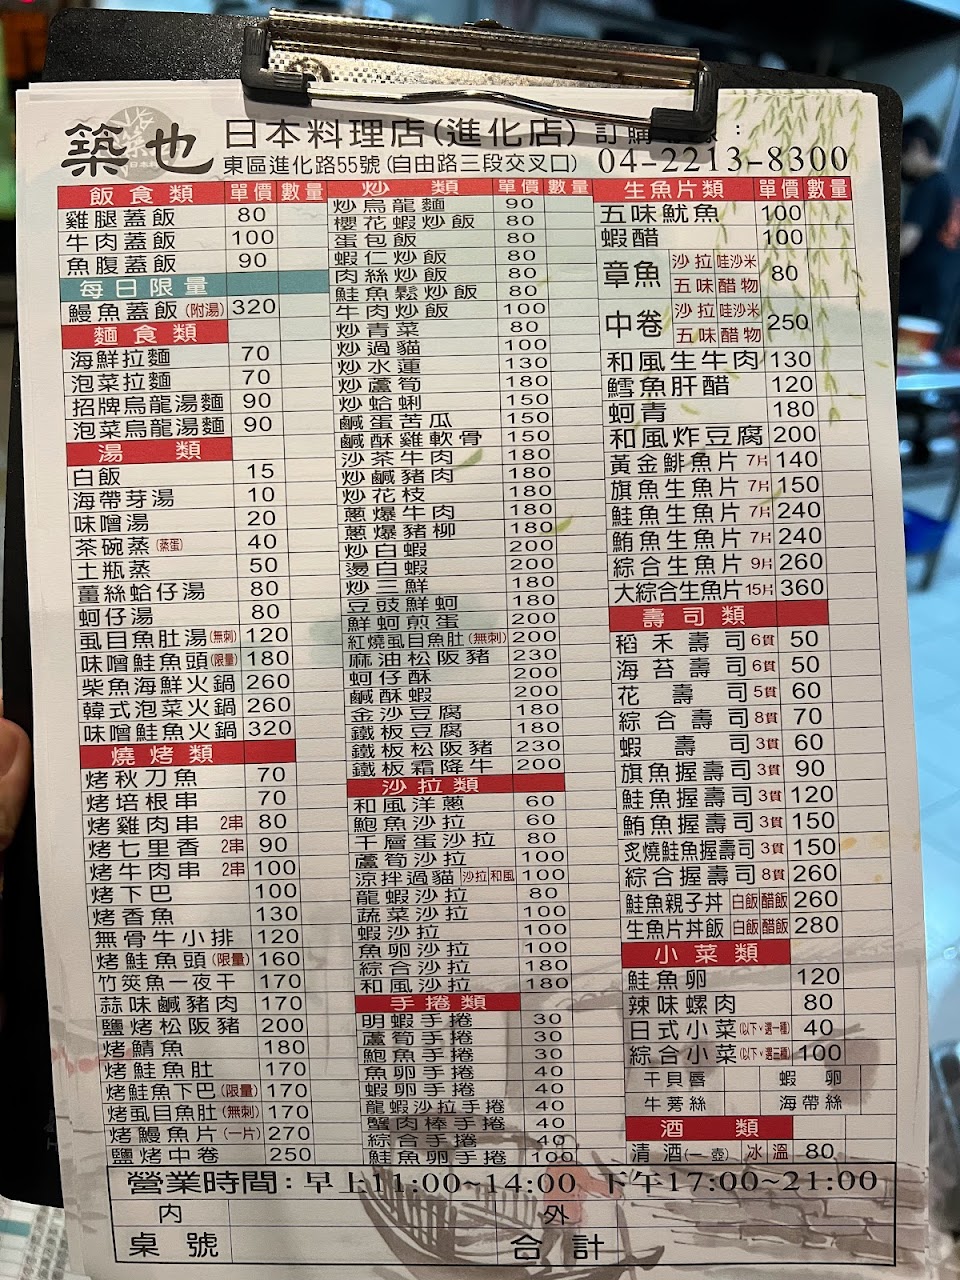 築也 日本料理店(進化店) 訂購
東區進化路55號(自由路三段交叉口) 04-2213-8300
飯食類 單價 數量
雞腿蓋飯 80
牛肉蓋飯 100
魚腹蓋飯 90
每日限量
鰻魚蓋飯(附湯) 320
麵食類
海鮮拉麵 70
泡菜拉麵 70
招牌烏龍湯麵 90
泡菜烏龍湯麵 90
湯類
白飯 15
海帶芽湯 10
味噌湯 20
茶碗蒸(蒸蛋) 40
土瓶蒸 50
薑絲蛤仔湯 80
蚵仔湯 80
虱目魚肚湯(無刺) 120
味噌鮭魚頭(限量) 180
柴魚海鮮火鍋 260
韓式泡菜火鍋 260
味噌鮭魚火鍋 320
燒烤類
烤秋刀魚 70
烤培根串 70
烤雞肉串 2串 80
烤七里香 2串 90
烤牛肉串 2串 100
烤下巴 100
烤香魚 130
無骨牛小排 120
烤鮭魚頭(限量) 160
竹筴魚一夜干 170
蒜味鹹豬肉 170
鹽烤松阪豬 200
烤鯖魚 180
烤鮭魚肚 170
烤鮭魚下巴(限量) 170
烤虱目魚肚(無刺) 170
烤鰻魚片(一片) 270
鹽烤中卷 250
炒類 單價 數量
炒烏龍麵 90
櫻花蝦炒飯 80
蛋包飯 80
蝦仁炒飯 80
肉絲炒飯 80
鮭魚鬆炒飯 80
牛肉炒飯 100
炒青菜 80
炒過貓 100
炒水蓮 130
炒蘆筍 180
炒蛤蜊 150
鹹蛋苦瓜 150
鹹酥雞軟骨 150
沙茶牛肉 180
炒鹹豬肉 180
炒花枝 180
蔥爆牛肉 180
蔥爆豬柳 180
炒白蝦 200
燙白蝦 200
炒三鮮 180
豆豉鮮蚵 180
鮮蚵煎蛋 200
紅燒虱目魚肚(無刺) 200
麻油松阪豬 230
蚵仔酥 200
鹹酥蝦 200
金沙豆腐 180
鐵板豆腐 180
鐵板松阪豬 230
鐵板霜降牛 200
沙拉類
和風洋蔥 60
鮑魚沙拉 60
千層蛋沙拉 80
蘆筍沙拉 100
涼拌過貓 沙拉 和風 100
龍蝦沙拉 80
蔬菜沙拉 100
蝦沙拉 100
魚卵沙拉 100
綜合沙拉 180
和風沙拉 180
手捲類
明蝦手捲 30
蘆筍手捲 30
鮑魚手捲 30
魚卵手捲 40
蝦卵手捲 40
龍蝦沙拉手捲 40
蟹肉棒手捲 40
綜合手捲 40
鮭魚卵手捲 100
生魚片類 單價 數量
五味魷魚 100
蝦醋 100
章魚 沙拉 哇沙米 五味 醋物 80
中卷 沙拉 哇沙米 五味 醋物 250
和風生牛肉 130
鱈魚肝醋 120
蚵青 180
和風炸豆腐 200
黃金鯡魚片 7片 140
旗魚生魚片 7片 150
鮭魚生魚片 7片 240
鮪魚生魚片 7片 240
綜合生魚片 9片 260
大綜合生魚片 15片 360
壽司類
稻禾壽司 6貫 50
海苔壽司 6貫 50
花壽司 5貫 60
綜合壽司 8貫 70
蝦壽司 3貫 60
旗魚握壽司 3貫 90
鮭魚握壽司 3貫 120
鮪魚握壽司 3貫 150
炙燒鮭魚握壽司 3貫 150
綜合握壽司 8貫 260
鮭魚親子丼 白飯 醋飯 260
生魚片丼飯 白飯 醋飯 280
小菜類
鮭魚卵 120
辣味螺肉 80
日式小菜(以下˅選一種) 40
綜合小菜(以下˅選三種) 100
干貝唇 蝦卵
牛蒡絲 海帶絲
酒類
清酒(一壺) 冰 溫 80
營業時間:早上11:00~14:00 下午17:00~21:00
內 外
桌號 合計